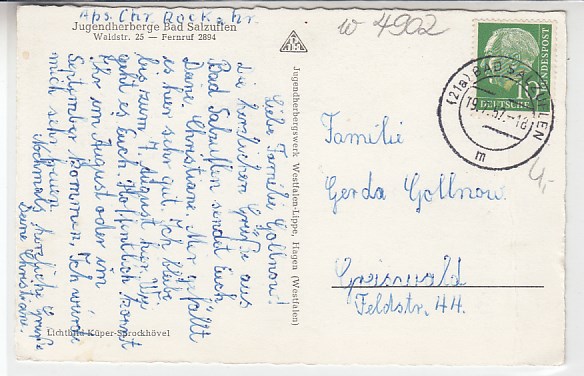 Abs. Chr.
w 4902
Jugendherberge Bad Salzuflen
Waldstr. 25 — Fernruf 2894
Liebe Familie Gollnow!
Die herzlichen Grüße aus
Bad Salzuflen sendet Euch
Deine Christiane. Mir gefällt
es hier sehr gut. Ich bleibe
bis zum 7. August hier. Wie
geht es Euch. Hoffentlich kommt
Ihr im August oder im
September kommen. Ich würde
mich sehr freuen.
Nochmals herzliche Grüße
Deine Christiane.
Jugendherbergswerk Westfalen-Lippe, Hagen (Westfalen)
Lichtbild Küper-Sprockhövel
DEUTSCHE
BUNDESPOST
10
(21a) BAD SALZUFLEN
m
4,-
Familie
Gerda Gollnow
Greiswald
Feldstr. 44.